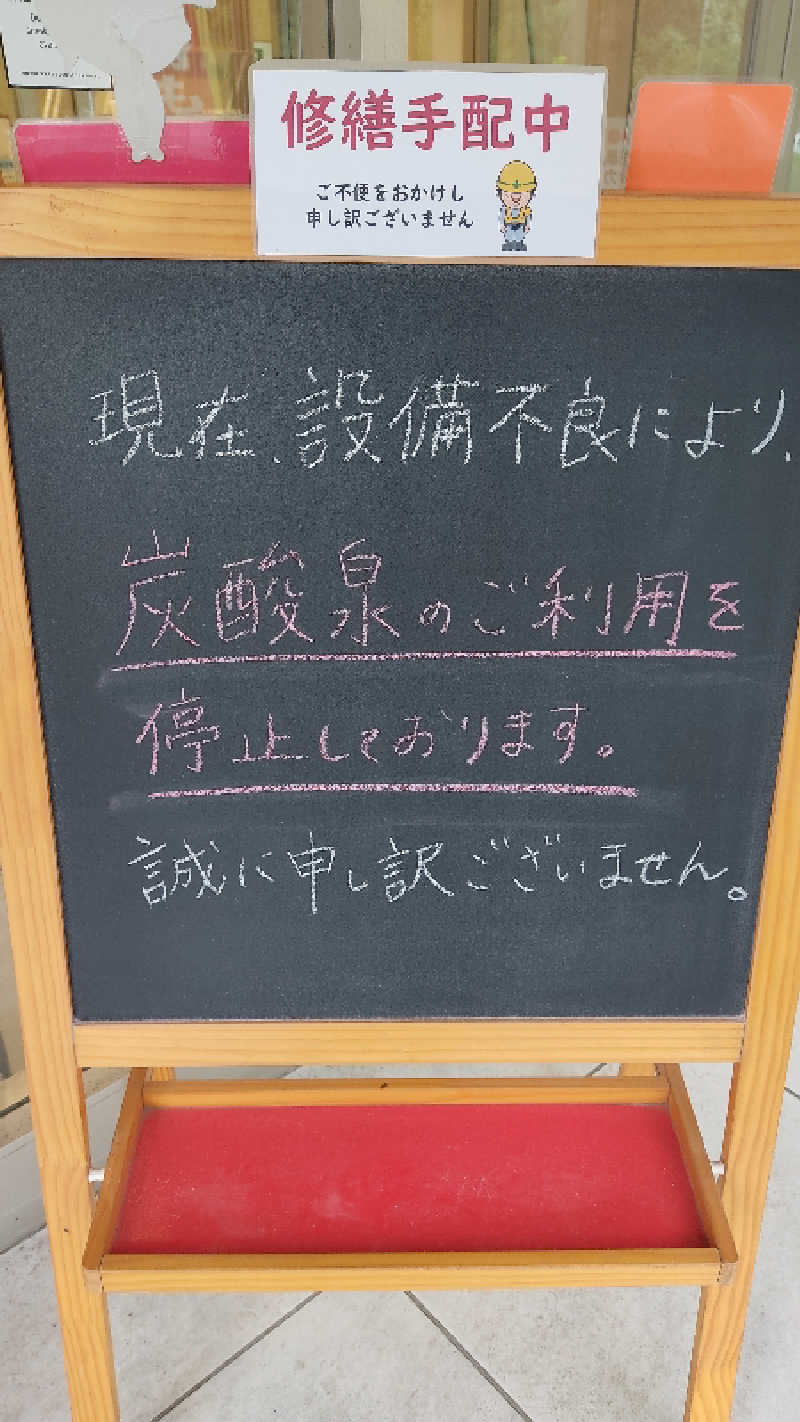 修繕手配中
ご不便をおかけし
申し訳ございません
現在、設備不良により、
炭酸泉のご利用を
停止しております。
誠に申し訳ございません。